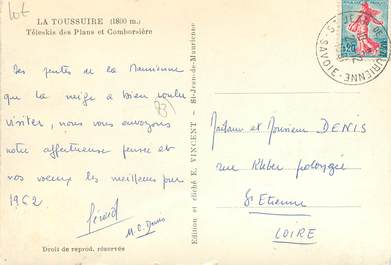 LA TOUSSUIRE (1800 m.)
Téleskis des Plans et Comborsière
Des pentes de la Maurienne
que la neige a bien voulu
visiter, nous vous envoyons
notre affectueuse pensée et
nos vœux les meilleurs pour
1962
Gérard
M. C. Denis
Droit de reprod. réservés
(73)
Edition et cliché E. VINCENT - St-Jean-de-Maurienne
ST-JEAN DE MAURIENNE
SAVOIE
0,25
Madame et Monsieur DENIS
rue Kléber prolongée
St Etienne
LOIRE